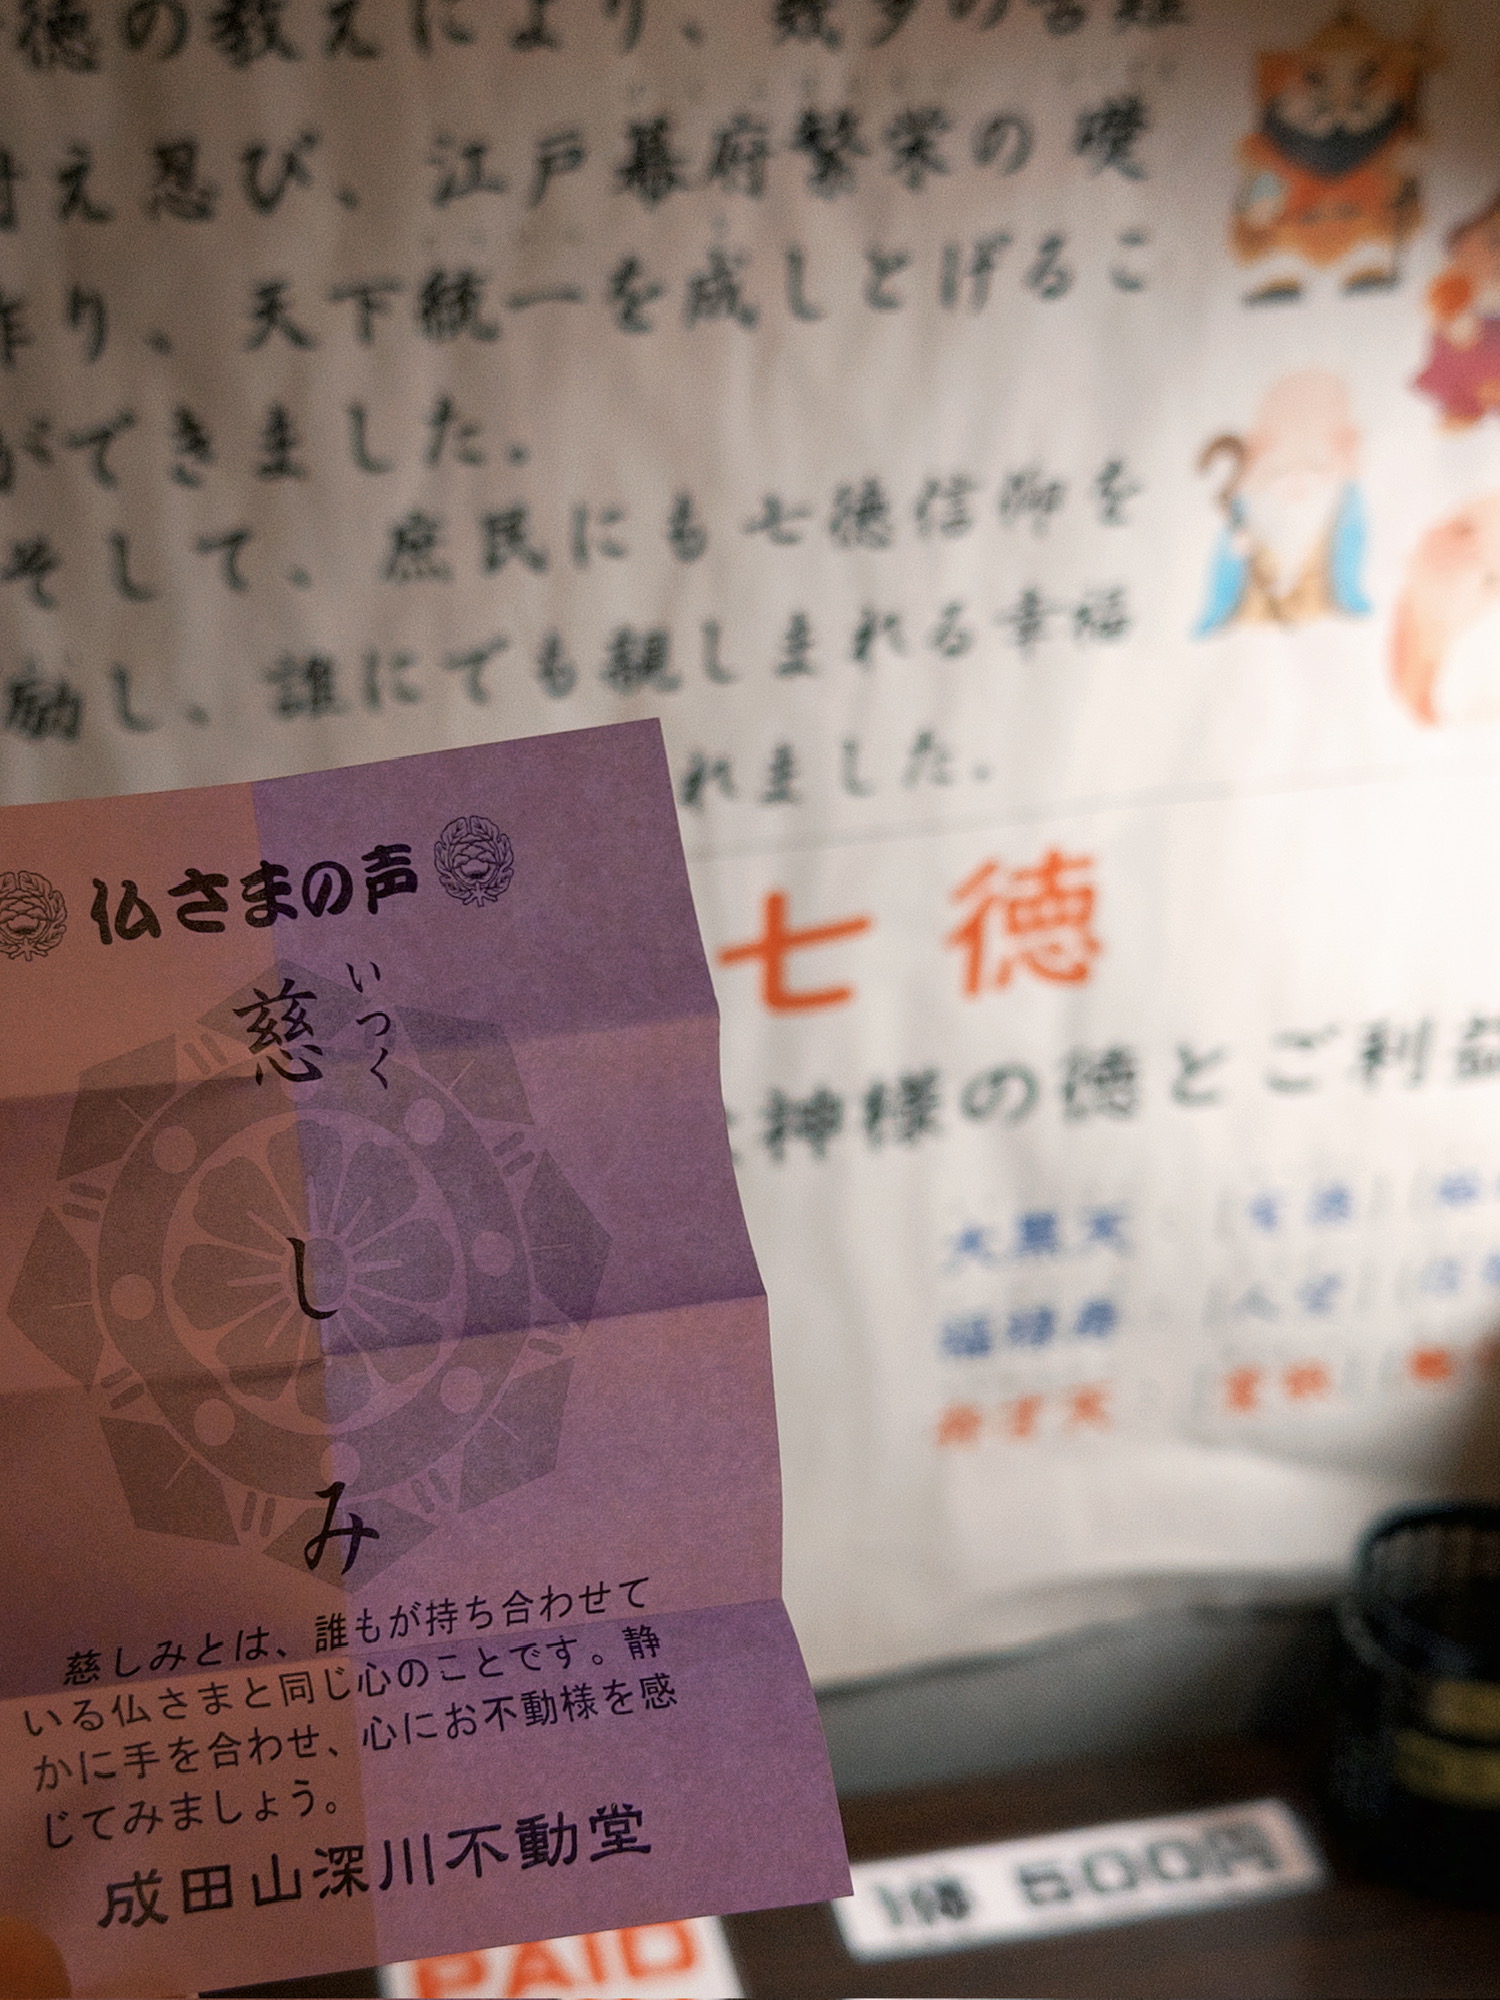 徳の教えにより、幾多の苦難
耐え忍び、江戸幕府繁栄の礎
作り、天下統一を成しとげるこ
ができました。
そして、庶民にも七徳信仰を
励し、誰にでも親しまれる幸福
れました。
七徳
神様の徳とご利益
大黒天
福禄寿
弁才天
仏さまの声
慈しみ
いつく
慈しみとは、誰もが持ち合わせて
いる仏さまと同じ心のことです。静
かに手を合わせ、心にお不動様を感
じてみましょう。
成田山深川不動堂
PAID
500円